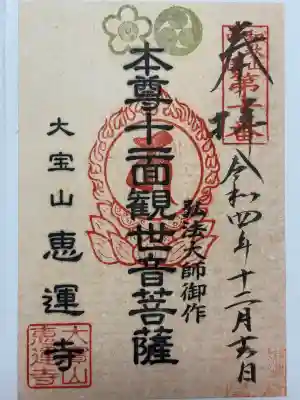 奉拝
第十番
令和四年十二月六日
弘法大師御作
本尊十一面観世音菩薩
大宝山 恵運寺
大宝山
恵運寺